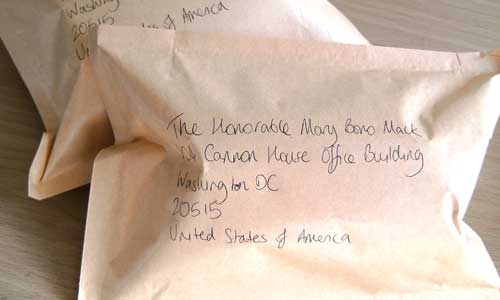 Washing
20515
States of America
The Honorable Mary Bono Mack
Cannon House Office Building
Washington DC
20515
United States of America